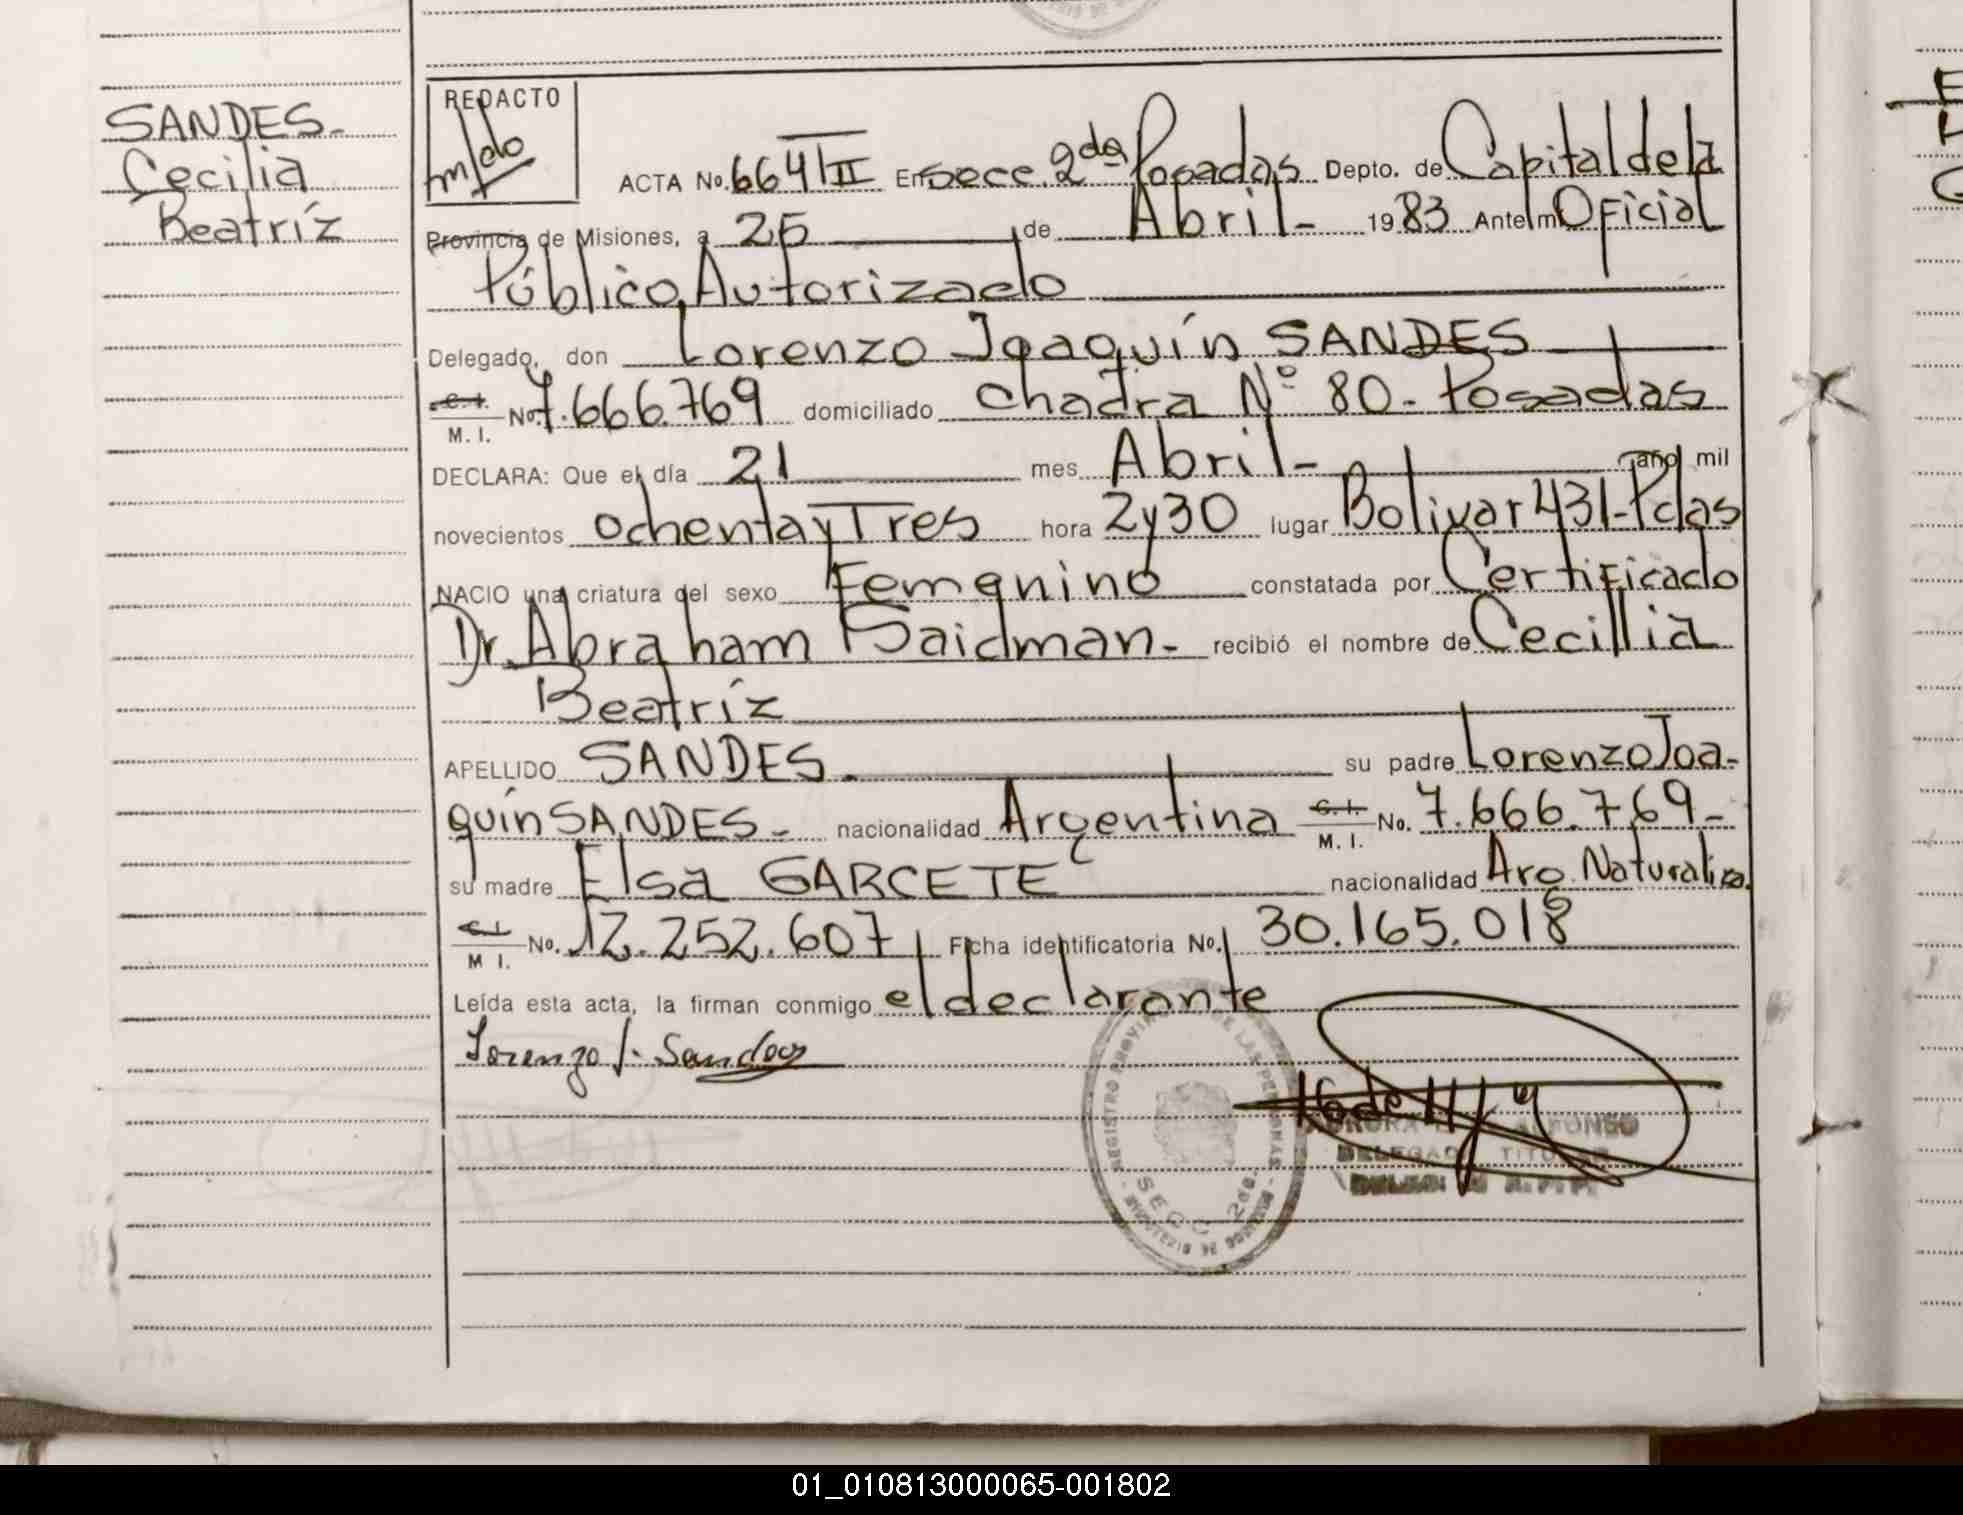 SANDES-
Cecilia
Beatríz
REDACTO
ACTA No. 664/III En Secc. 2da Posadas Depto. de Capital de la
Provincia de Misiones, a 25 de Abril- 1983 Ante mí Oficial
Público Autorizado
Delegado, don Lorenzo Joaquín SANDES
C. I. M. I. No. 7.666.769 domiciliado Chacra Nº 80- Posadas
DECLARA: Que el día 21 mes Abril- año mil
novecientos ochenta y Tres hora 2 y 30 lugar Bolivar 431-Pdas
NACIO una criatura del sexo Femenino constatada por Certificado
Dr. Abraham Saidman- recibió el nombre de Cecilia
Beatríz
APELLIDO SANDES. su padre Lorenzo Joa-
quín SANDES- nacionalidad Argentina C. I. M. I. No. 7.666.769-
su madre Elsa GARCETE nacionalidad Arg. Naturaliza.
C. I. M I. No. 12.252.607 Ficha identificatoria No. 30.165.018
Leída esta acta, la firman conmigo el declarante
Lorenzo J. Sandes
REGISTRO PROVINCIAL DE LAS PERSONAS
SECC 2da.
ALFONSO
DELEGADO TITULAR
01_010813000065-001802